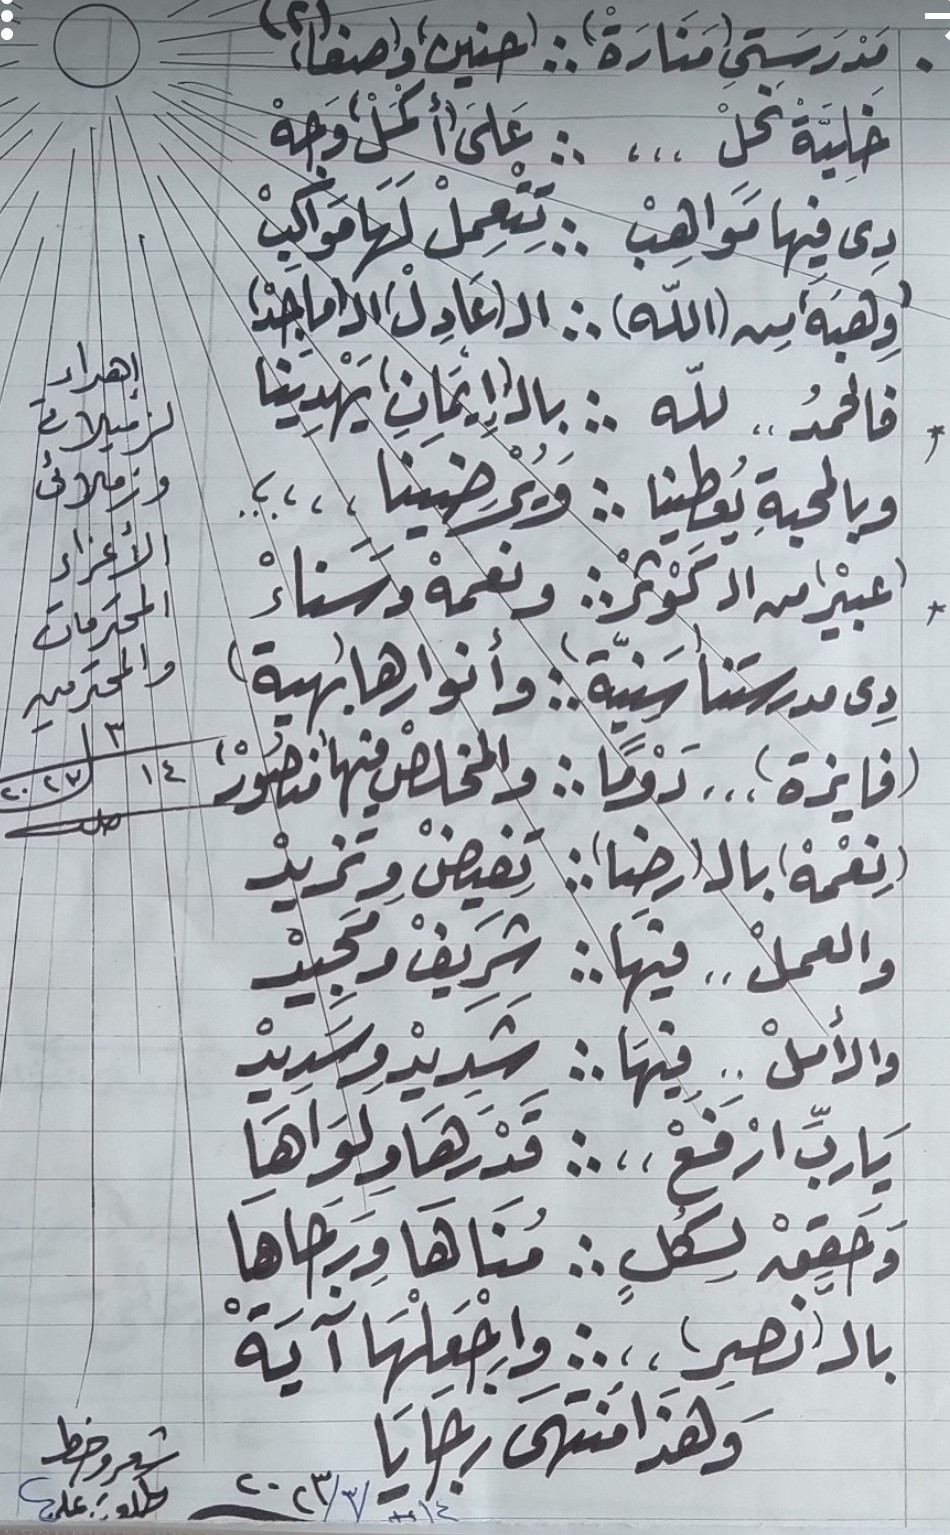 . مَدْرَسَتِي (مَنَارَةْ) :: (حنين) و(صفا) (٢)
خَلِيَّةْ نَحْلْ ،،، :: عَلَى (أَكْمَلْ) وَجِهْ
دِى فِيها مَوَاهِبْ :: تِتْعِمِلْ لَهَا مَوَاكِبْ
(وِهِبَة) من (اللّه) :: الـ(عَادِلْ) الـ(مَاجِدْ)
فالحمدُ .. للّه :: بالـ(إِيمَانِ) يَهْدِينا
وبالمحبةِ يُعطينا :: وَيُرْضِينا ،،،،
(عبيرْ) من الـ كَوْثَرْ :: ونعمهْ وسَناءْ
دِى مدرستنا (سَنِيَّة) :: وأنوارها (بهية)
(فايزة) ،،، دَوْمًا :: والمخلصْ فيها (منصُورْ)
(نِعْمَهْ) بالـ(رِضَا) :: تِفِيضْ وِتْزِيدْ
والعملْ .. فِيهَا :: شَرِيفْ ومَجِيدْ
والأملْ .. فِيهَا :: شَدِيدْ وِسَدِيدْ
يَاربِّ ارْفَعْ ،، :: قَدْرَهَا وِلِوَاهَا
وَحَقِقْ لِكُلٍ :: مُنَاهَا وِرَجَاهَا
بالـ(نصر) ،، :: وَاجْعَلْهَا آيَةْ
وَهَذَا مُنْتَهَى رَجَايَا
إهداء
لزميلاتى
وزملائى
الأعزاء
المحترمات
والمحترمين
١٤ / ٣ / ٢٠٢٣
شعر وخط
٢٠٢٣/٣/١٤